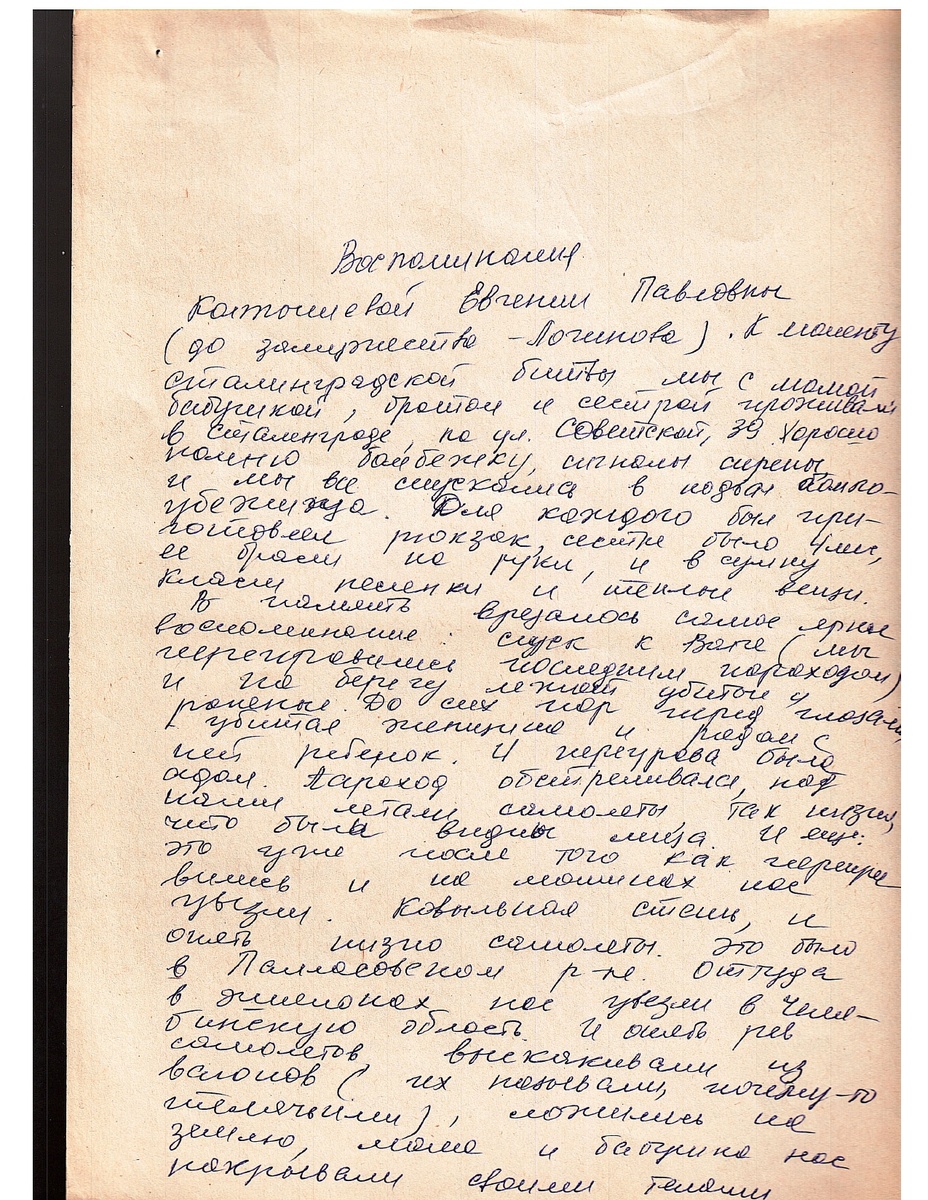 Воспоминания
Евгении Павловны
(до замужества - Логинова). К моменту
сталинградской битвы мы с мамой
бабушкой, братом и сестрой проживали
в Сталенграде, по ул. Советской, 39 Хорошо
помню бомбежку, сигналы сирены
и мы все спускались в подвал бомбо-
убежища. Для каждого был при-
готовлен рюкзак, сестре было 4 мес,
ее брали на руки, и в сумку
клали пеленки и теплые вещи.
В память врезалось самое яркое
воспоминание: спуск к Волге (мы
переправились последним пароходом)
и на берегу лежат убитые и
раненые. До сих пор перед глазами
убитая женщина и рядом с
ней ребенок. И переправа была
адом. Пароход обстреливался, над
нами летали самолеты, так низко,
что были видны лица. И еще:
это уже после того как перепра
вились и на машинах нас
увезли. Ковыльная степь, и
опять низко самолеты. Это было
в Палласовском р-не. Оттуда
в эшелонах нас увезли в Челя-
бинскую область. И опять рев
самолетов выскакивали из
вагонов (их называли, почему-то
телячьими), ложились на
землю, мама и бабушка нас
накрывали своими телами